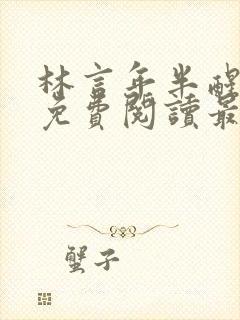 林言年半醒
免費閱讀最
蟹子